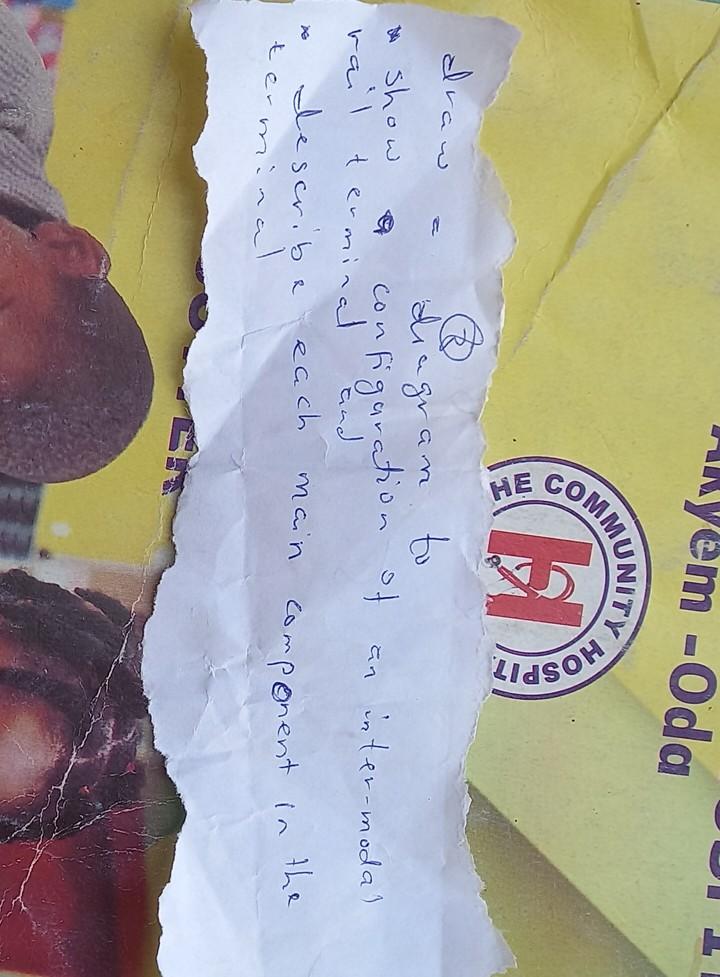 ②
draw a diagram to
* show configuration of an inter-modal
rail terminal and
* describe each main component in the
terminal
THE COMMUNITY HOSPIT
H
Akyem - Oda